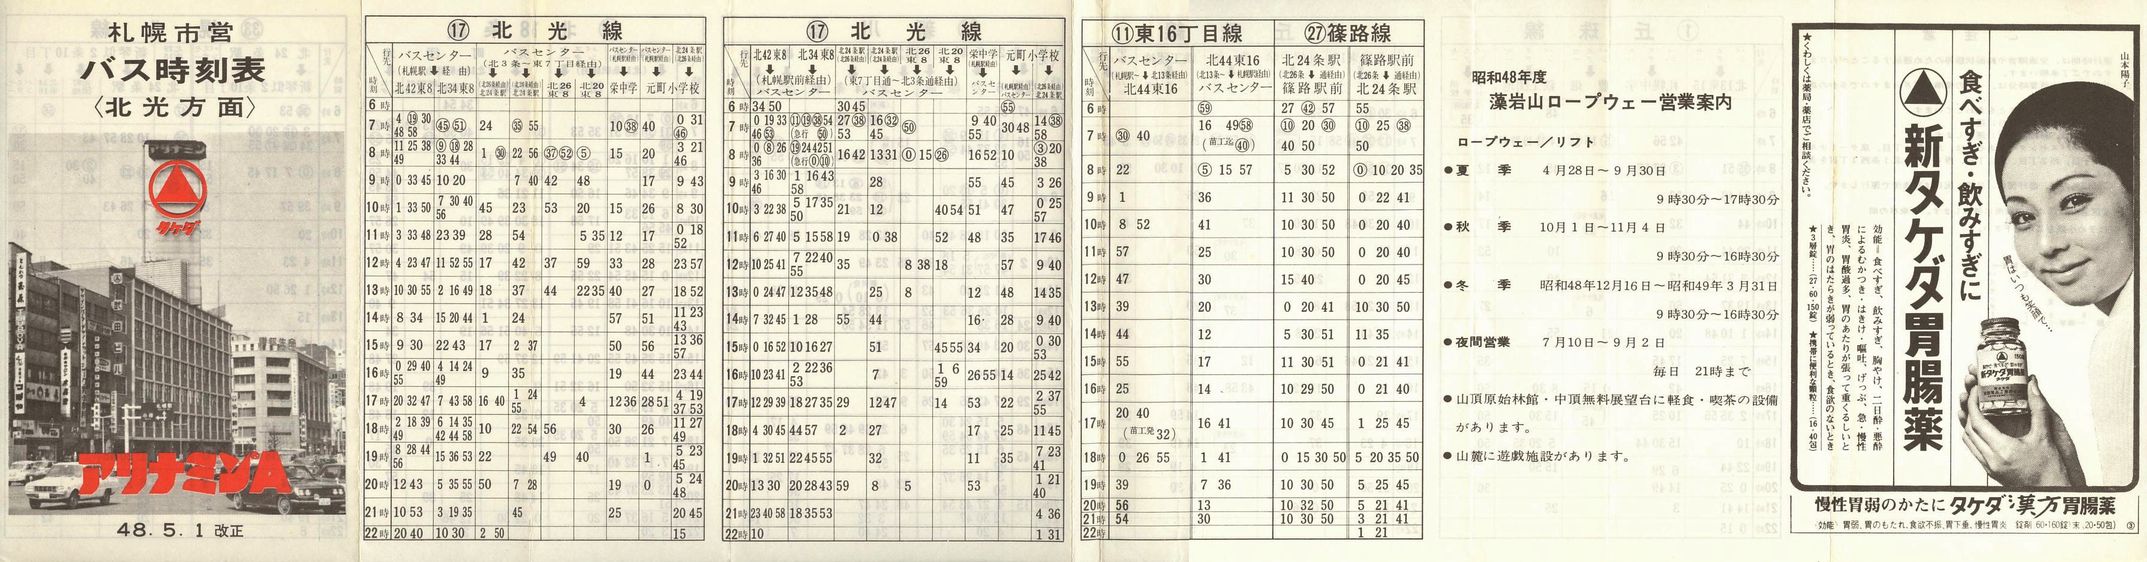 札幌市営
バス時刻表
〈北光方面〉
アリナミン
タケダ
アリナミンA
48. 5. 1 改正
⑰ 北光線
行先
時刻
バスセンター
(札幌駅経由)
北42東8 北34東8
バスセンター
(北3条~東7丁目経由)
北26東8 北20東8
栄中学 元町小学校
6時
7時 4 ⑲ 30 48 58 ㊺ 51 24 ㉟ 55 10 ㊳ 40 0 31 ㊻
8時 11 25 38 49 ⑨ ⑱ 28 33 44 1 ㉚ 22 56 ㊲ 52 ⑤ 15 20 3 21 46
9時 0 33 45 10 20 7 40 42 48 17 9 43
10時 1 33 50 7 30 40 56 45 23 53 20 15 26 8 30
11時 3 33 48 23 39 28 54 5 35 12 17 0 18 52
12時 4 23 47 11 52 55 17 42 37 59 33 28 23 57
13時 10 30 55 2 16 49 18 37 44 22 35 40 27 18 52
14時 8 34 15 20 44 1 24 57 51 11 23 43
15時 9 30 22 43 17 2 37 50 56 13 36 57
16時 0 29 40 55 4 14 24 49 9 35 19 44 23 44
17時 20 32 47 7 43 58 16 40 1 24 55 4 12 36 28 51 4 19 37 53
18時 2 18 39 49 6 14 35 42 44 58 10 22 54 56 30 26 11 27 49
19時 8 28 44 56 15 36 53 22 49 40 1 5 23 45
20時 12 43 5 35 55 50 7 28 19 0 5 24 48
21時 10 53 3 19 35 45 25 20 45
22時 20 40 10 30 2 50 15
⑰ 北光線
行先
時刻
北42東8 北34東8
(札幌駅前経由)
バスセンター
北24条駅 北24条駅 北26東8 北20東8
(東7丁目通~北3条通経由)
バスセンター
栄中学 元町小学校
6時 34 50 30 45 55
7時 0 19 33 46 53 ⑪ ⑲ ㊳ 54 (急行 50) 27 ㊳ 53 16 ㉜ 45 50 9 40 55 30 48 14 ㊳ 58
8時 0 ⑧ 26 36 ⑲ 24 42 51 (急行 0 ⑩) 16 42 13 31 0 15 ㉖ 16 52 10 ③ 20 38
9時 3 16 30 46 1 16 43 58 28 55 45 3 26
10時 3 22 38 5 17 35 50 21 12 40 54 51 47 0 25 57
11時 6 27 40 5 15 58 19 0 38 52 48 35 17 46
12時 10 25 41 7 22 40 55 35 8 38 18 57 9 40
13時 0 24 47 12 35 48 25 8 12 48 14 35
14時 7 32 45 1 28 55 44 16 28 9 40
15時 0 16 52 10 16 27 51 45 55 34 20 0 30 53
16時 10 23 41 2 22 36 53 7 1 6 59 26 55 14 25 42
17時 12 29 39 18 27 35 29 12 47 14 53 22 2 37 55
18時 4 30 45 44 57 2 27 17 25 11 45
19時 1 32 51 22 45 55 32 11 35 7 23 41
20時 13 30 20 28 43 59 8 5 53 1 21 40
21時 23 40 58 18 35 53 4 36
22時 10 1 31
⑪東16丁目線 ㉗篠路線
行先
時刻
バスセンター
(札幌駅~北13条経由)
北44東16
北44東16
(北13条~札幌駅経由)
バスセンター
北24条駅
(北26条通経由)
篠路駅前
篠路駅前
(北26条通経由)
北24条駅
6時 59 27 ㊷ 57 55
7時 ㉚ 40 16 49 58 (苗工迄 ㊵) ⑩ 20 ㉚ 40 50 ⑩ 25 ㊳ 50
8時 22 ⑤ 15 57 5 30 52 0 10 20 35
9時 1 36 11 30 50 0 22 41
10時 8 52 41 10 30 50 0 20 40
11時 57 25 10 30 50 0 20 40
12時 47 30 15 40 0 25 50
13時 39 20 0 20 41 10 30 50
14時 44 12 5 30 51 11 35
15時 55 17 11 30 51 0 21 41
16時 25 14 10 29 50 0 21 40
17時 20 40 (苗工発 32) 16 41 10 30 45 1 25 45
18時 0 26 55 1 41 0 15 30 50 5 20 35 50
19時 39 7 36 10 30 50 5 25 45
20時 56 13 10 32 50 5 21 41
21時 54 30 10 30 50 5 21 41
22時 1 21
昭和48年度
藻岩山ロープウェー営業案内
ロープウェー/リフト
●夏 季 4月28日~9月30日
9時30分~17時30分
●秋 季 10月1日~11月4日
9時30分~16時30分
●冬 季 昭和48年12月16日~昭和49年3月31日
9時30分~16時30分
●夜間営業 7月10日~9月2日
毎日 21時まで
●山頂原始林館・中頂無料展望台に軽食・喫茶の設備
があります。
●山麓に遊戯施設があります。
山本陽子
食べすぎ・飲みすぎに
新タケダ胃腸薬
胃はいつも笑顔で…
★くわしくは薬局・薬店でご相談ください。
効能=食べすぎ、飲みすぎ、胸やけ、二日酔・悪酔
によるむかつき・はきけ・嘔吐、げっぷ、急・慢性
胃炎、胃酸過多、胃のあたりが張って重くるしいと
き、胃のはたらきが弱っているとき、食欲のないとき
★3層錠……(27・60・150錠) ★携帯に便利な顆粒……(16・40包)
新タケダ胃腸薬
慢性胃弱のかたに タケダ漢方胃腸薬
〈効能〉胃弱、胃のもたれ、食欲不振、胃下垂、慢性胃炎 錠剤 60・160錠 末、20・50包) ③